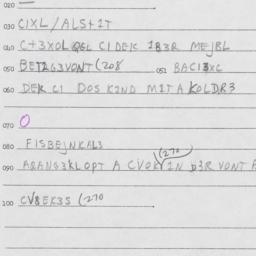 020
030 CIXL / ALS+IT
040 C+3XOL QGL CI DEK 1B3R MEJBL
050 BETZG3VONT (208 051 BACI3XC
060 DEK CI DOS K2ND MIT A KOLDR3
070 O
080 FISBEJNKALS
(270
090 AQANG3KLOPT A CVOK 2IN D3R VONT A
100 CV8EK3S (270